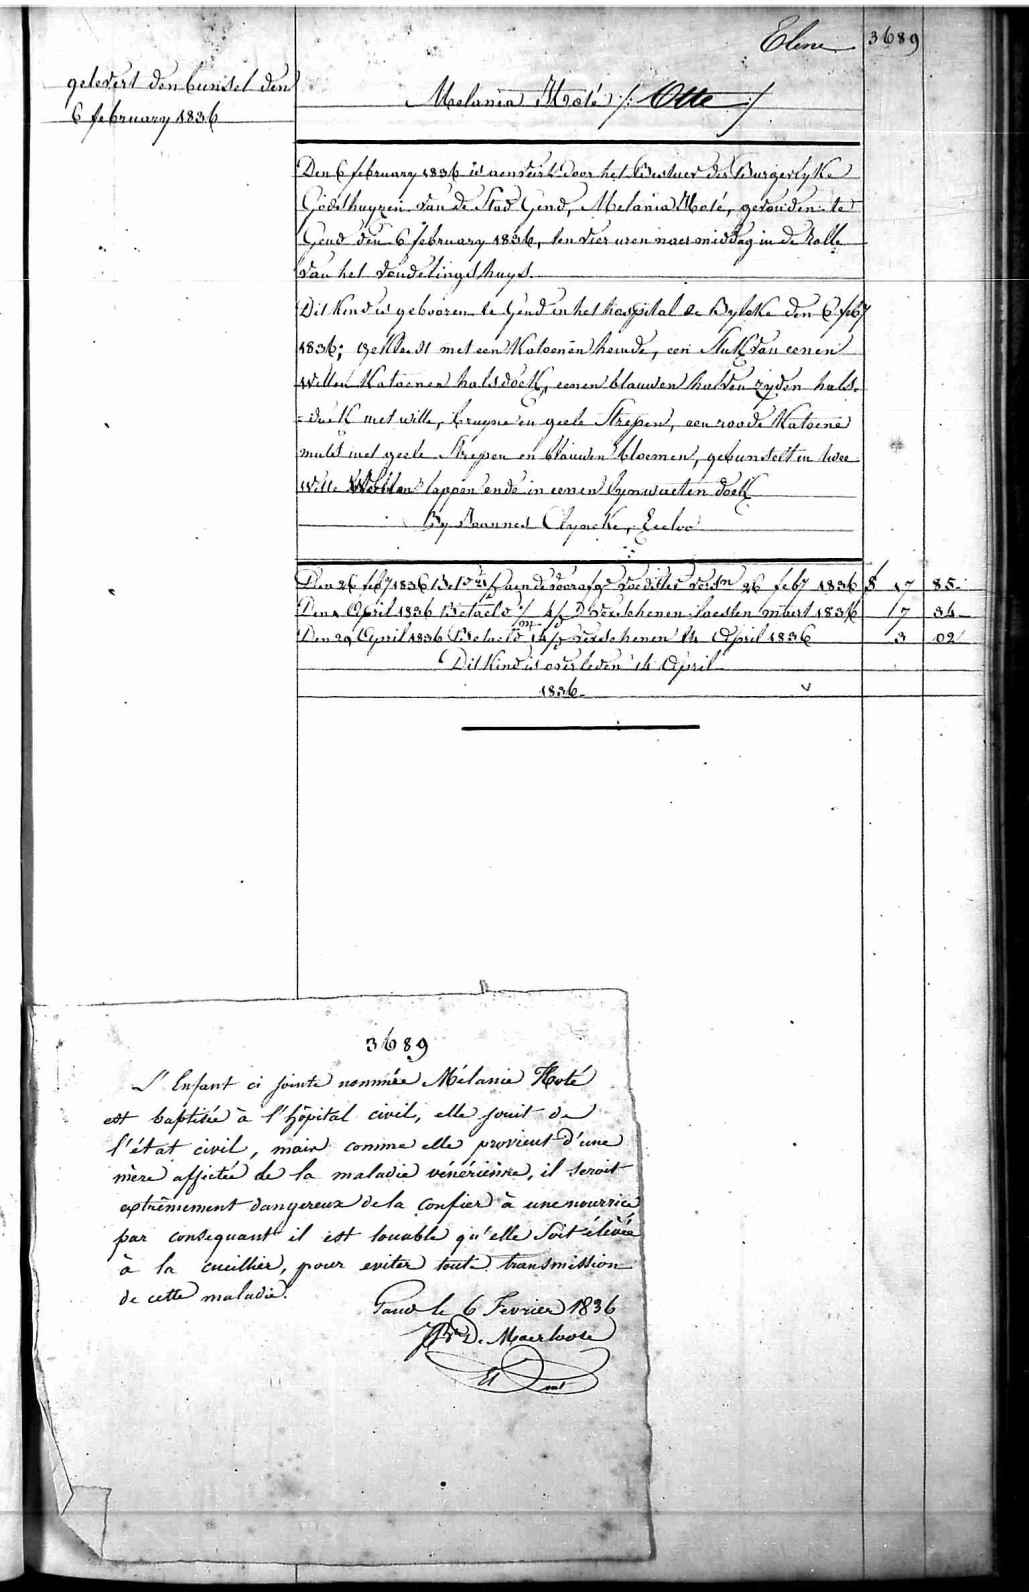 Elene 3689
gelevert den bunsel den
6 february 1836
Melania Hoté /: Otte :/
Den 6 february 1836 is aenveirt door het Bestuer der Burgerlyke
Godshuyzen van de Stad Gend, Melania Hoté, gevonden te
Gend den 6 february 1836, ten vier uren naermiddag in de Rolle
van het vondelingshuys.
Dit kind is gebooren te Gend in het hospital de Byloke den 6 feby
1836; gekleedt met een Katoenen hemde, een stuk van eenen
witten Katoenen halsdoek, eenen blauwen halven zyden hals-
=doek met witte, bruyne en geele Strepen, een roode Katoene
muts met geele Strepen en blauwen bloemen, gebunselt in twee
witte lappen ende in eenen lynwaeten doek
By Joannes Clyncke, Eecloo
Den 26 feby 1836 aen de voorafge voedster 26 feby 1836 f 17 85
Den April 1836 Betaelt verschenen laesten maert 1836 17 34
Den 29 April 1836 Betaelt verschenen 14 April 1836 3 02
Dit Kind is overleden 14 April
1836
3689
L'Enfant ci jointe nommée Mélanie Hoté
est baptisée à l'hôpital civil, elle jouit de
l'état civil, mais comme elle provient d'une
mère affectée de la maladie vénérienne, il seroit
extrêmement dangereux de la confier à une nourrice
par consequant il est louable qu'elle soit élévée
à la cueillier, pour eviter toute transmission
de cette maladie.
Gand le 6 Fevrier 1836
D. Maerloose